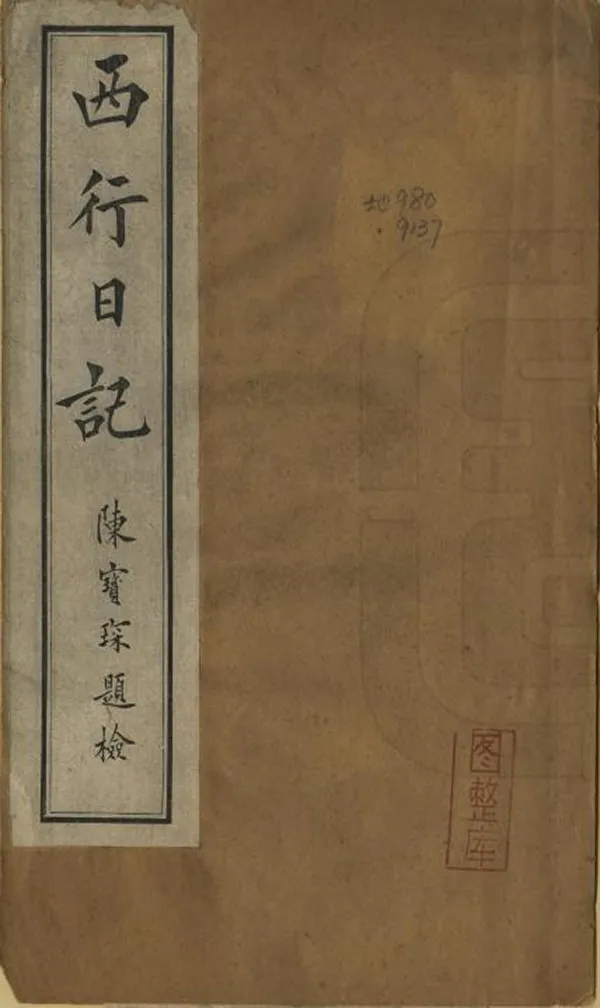 西行日記
陳寶琛題檢
地980
·9137
图整